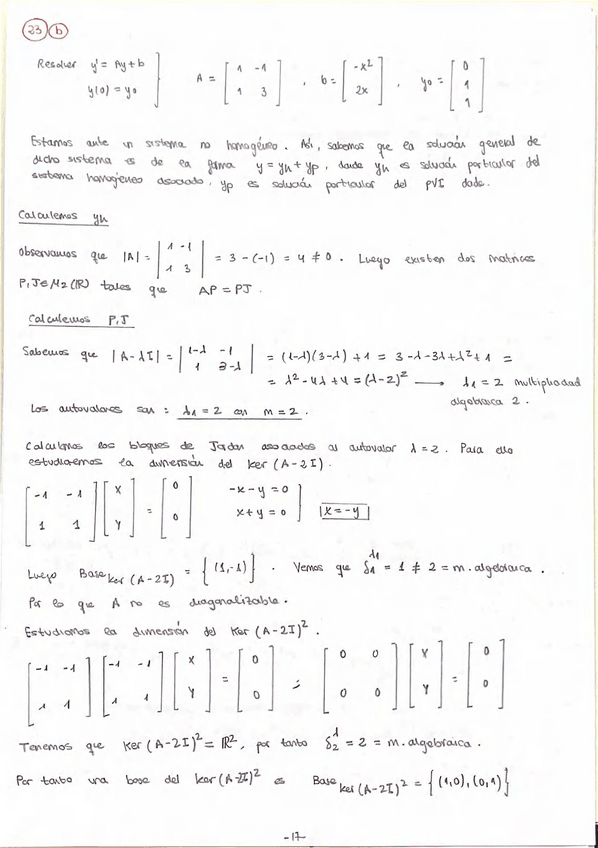 23 b
Resolver y' = Ay + b
y(0) = y0
A = [ 1 -1
1 3 ] , b = [ -x²
2x ] , y0 = [ 0
1
1 ]
Estamos ante un sistema no homogéneo. Así, sabemos que la solución general de
dicho sistema es de la forma y = yh + yp, donde yh es solución particular del
sistema homogéneo asociado, yp es solución particular del PVI dado.
Calculemos yh
Observamos que |A| = | 1 -1
1 3 | = 3 - (-1) = 4 ≠ 0. Luego existen dos matrices
P, J ∈ M2(IR) tales que AP = PJ.
Calculemos P, J
Sabemos que |A - λI| = | 1-λ -1
1 3-λ | = (1-λ)(3-λ) + 1 = 3 - λ - 3λ + λ² + 1 =
= λ² - 4λ + 4 = (λ-2)² → λ1 = 2 multiplicidad
algebraica 2.
Los autovalores son: λ1 = 2 con m = 2.
Calculamos los bloques de Jordan asociados al autovalor λ = 2. Para ello
estudiaremos la dimensión del ker (A - 2I).
[ -1 -1
1 1 ] [ x
y ] = [ 0
0 ] -x - y = 0
x + y = 0 | x = -y |
Luego Base ker (A-2I) = { (1,-1) }. Vemos que δ1^λ1 = 1 ≠ 2 = m. algebraica.
Por lo que A no es diagonalizable.
Estudiamos la dimensión del Ker (A - 2I)².
[ -1 -1
1 1 ] [ -1 -1
1 1 ] [ x
y ] = [ 0
0 ] ; [ 0 0
0 0 ] [ x
y ] = [ 0
0 ]
Tenemos que Ker (A - 2I)² = IR², por tanto δ2^λ = 2 = m. algebraica.
Por tanto una base del ker (A - 2I)² es Base ker (A-2I)² = { (1,0), (0,1) }
-17-